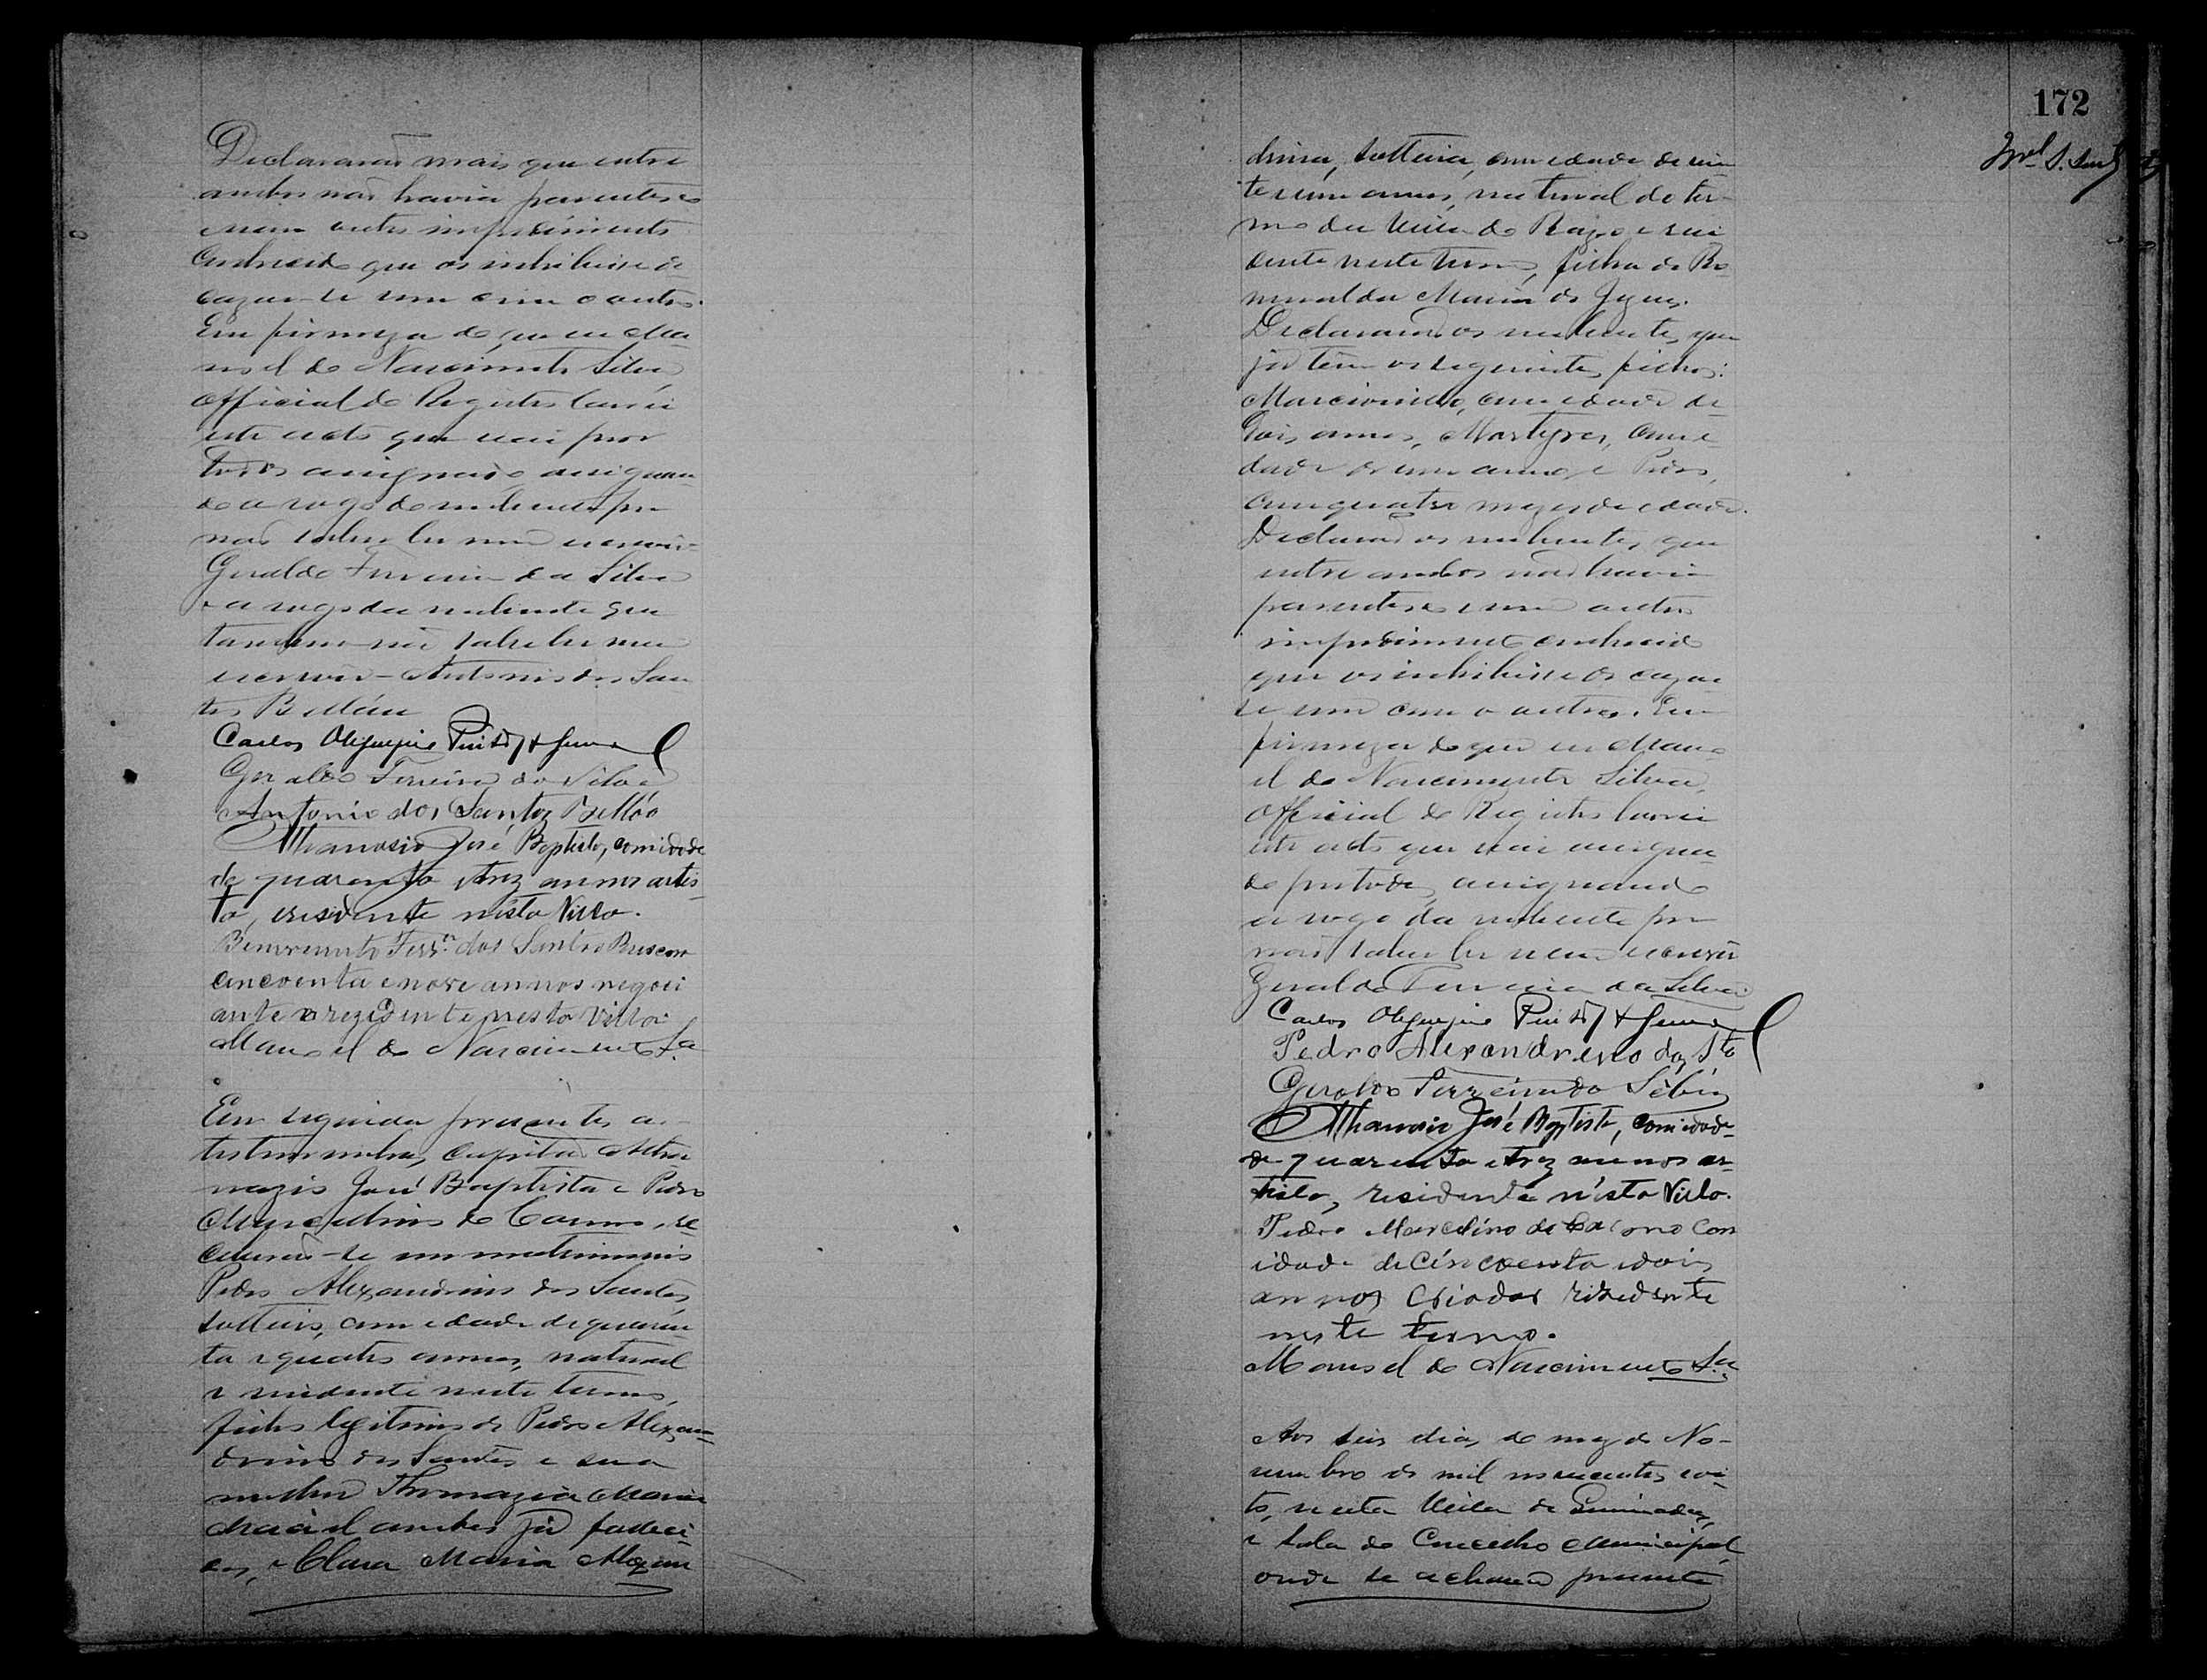 Declararão mais que entre
ambos não havia parentesco
nem outro impedimento
conhecido que os inhibisse de
cazar-se um com o outro.
Em firmeza do que eu Ma
noel do Nascimento Silva
Official do Registro lavrei
este acto que vai por
todos assignado, assignan
do a rogo do nubente por
não saber ler nem escrever
Geraldo Ferreira da Silva
e a rogo da nubente que
tambem não sabe ler nem
escrever - Antonio dos San
tos Bellão
Carlos Olegario
Geraldo Ferreira da Silva
Antonio dos Santos Bellão
Athanasio José Baptista, com idade
de quarenta e trez annos artis
ta, residente nésta Villa.
Benvenuto Ferr.ª dos Santos com
cincoenta e nove annos negoci
ante rezidente nesta Villa
Manoel do Nascimento S.ª
Em seguida presentes as
testemunhas, Capitão Atha
nazio José Baptista e Pedro
Marcelino do Carmo, re
ceberão-se em matrimonio
Pedro Alexandrino dos Santos,
solteiro, com edade de quaren
ta e quatro annos, natural
e residente neste termo,
filho legitimo de Pedro Alexan
drino dos Santos e sua
mulher Thomazia Maria
ambos já falleci
dos, e Clara Maria Alexan
172
drina, solteira, com edade de vin
te e um annos, natural do ter
mo da Villa do Razo e resi
dente neste termo, filha de Ro
mualda Maria de Jezus.
Declararão os nubentes que
já têm os seguintes filhos:
com edade de
dois annos, Martyres, com e
dade de um anno, e Pedro,
com quatro mezes de edade.
Declararão os nubentes que
entre ambos não havia
parentesco e nem outro
impedimento conhecido
que os inhibisse de cazar
se um com o outro. Em
firmeza do que eu Mano
el do Nascimento Silva,
Official do Registro lavrei
este acto que vai assigna
do por todos, assignando
a rogo da nubente por
não saber ler nem escrever
Geraldo Ferreira da Silva.
Carlos Olegario
Pedro Alexandrino dos Sto
Geraldo Ferreira da Silva
Athanasio José Baptista, com idade
de quarenta e trez annos ar
tista, residente n'ésta Villa.
Pedro Marcelino do Carmo com
idade de cincoenta e dois
annos criador rizedente
neste termo.
Manoel do Nascimento S.ª
Aos seis dias do mez de No-
vembro de mil novecentos e oi
to, nesta Villa de
e sala do Concelho Municipal,
onde se achava presente